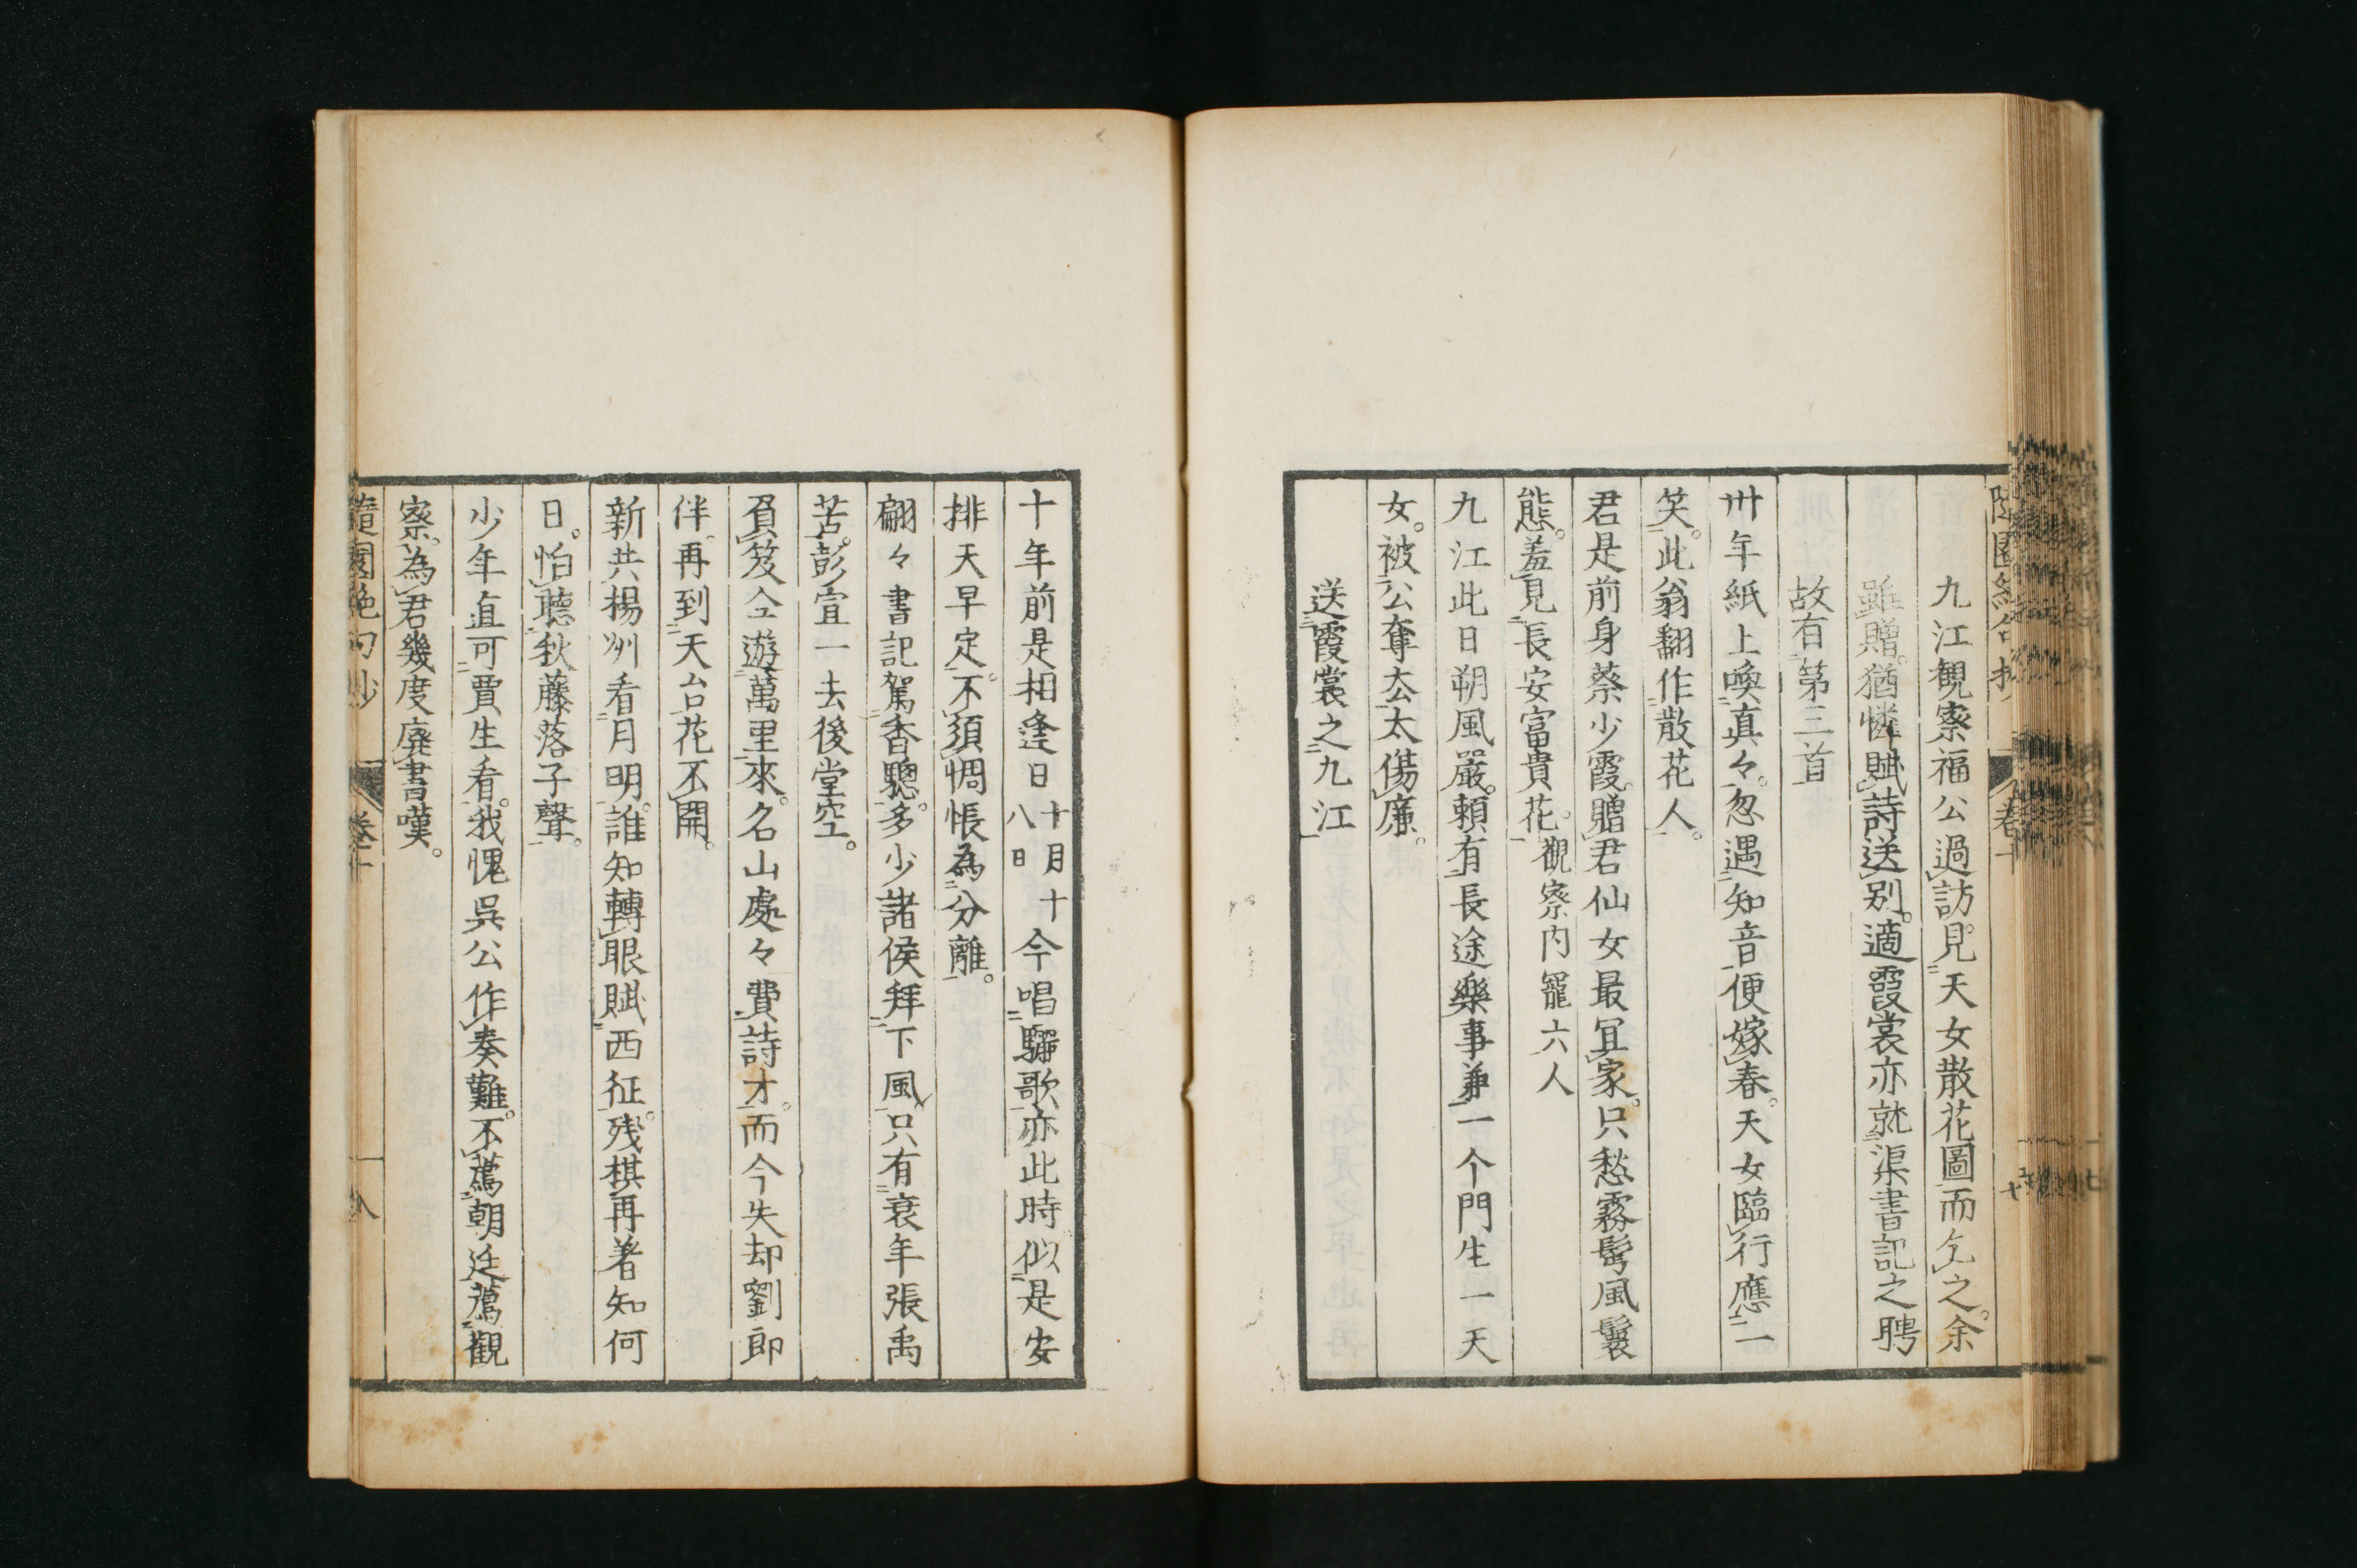 九江観察福公過訪見天女散花圖而乞之。余
雖贈。猶憐賦詩送別。適霞裳亦就渠書記之聘
故有第三首
卅年紙上喚真々。忽遇知音便嫁春。天女臨行應一
笑。此翁翻作散花人。
君是前身蔡少霞。贈君仙女最冝家。只愁霧鬢風鬟
態。羞見長安富貴花。觀察内寵六人
九江此日朔風嚴。頼有長途樂事兼一个門生一天
女。被公奪去太傷廉。
送霞裳之九江
十年前是相逢日十月十八日今唱驪歌亦此時似是安
排天早定。不須惆悵為分離。
翩々書記駕香驄。多少諸侯拜下風只有衰年張禹
苦。彭宣一去後堂空。
負笈仝遊萬里來。名山處々費詩才。而今失却劉郎
伴。再到天台花不開。
新共楊州看月明。誰知轉眼賦西征。残棋再著知何
日。怕聽秋藤落子聲。
少年直可賈生看。我愧吳公作奏難。不薦朝廷薦觀
察。為君幾度廢書嘆。
隨園絶句抄 卷十 一八